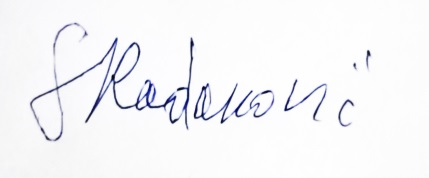 S Radaković